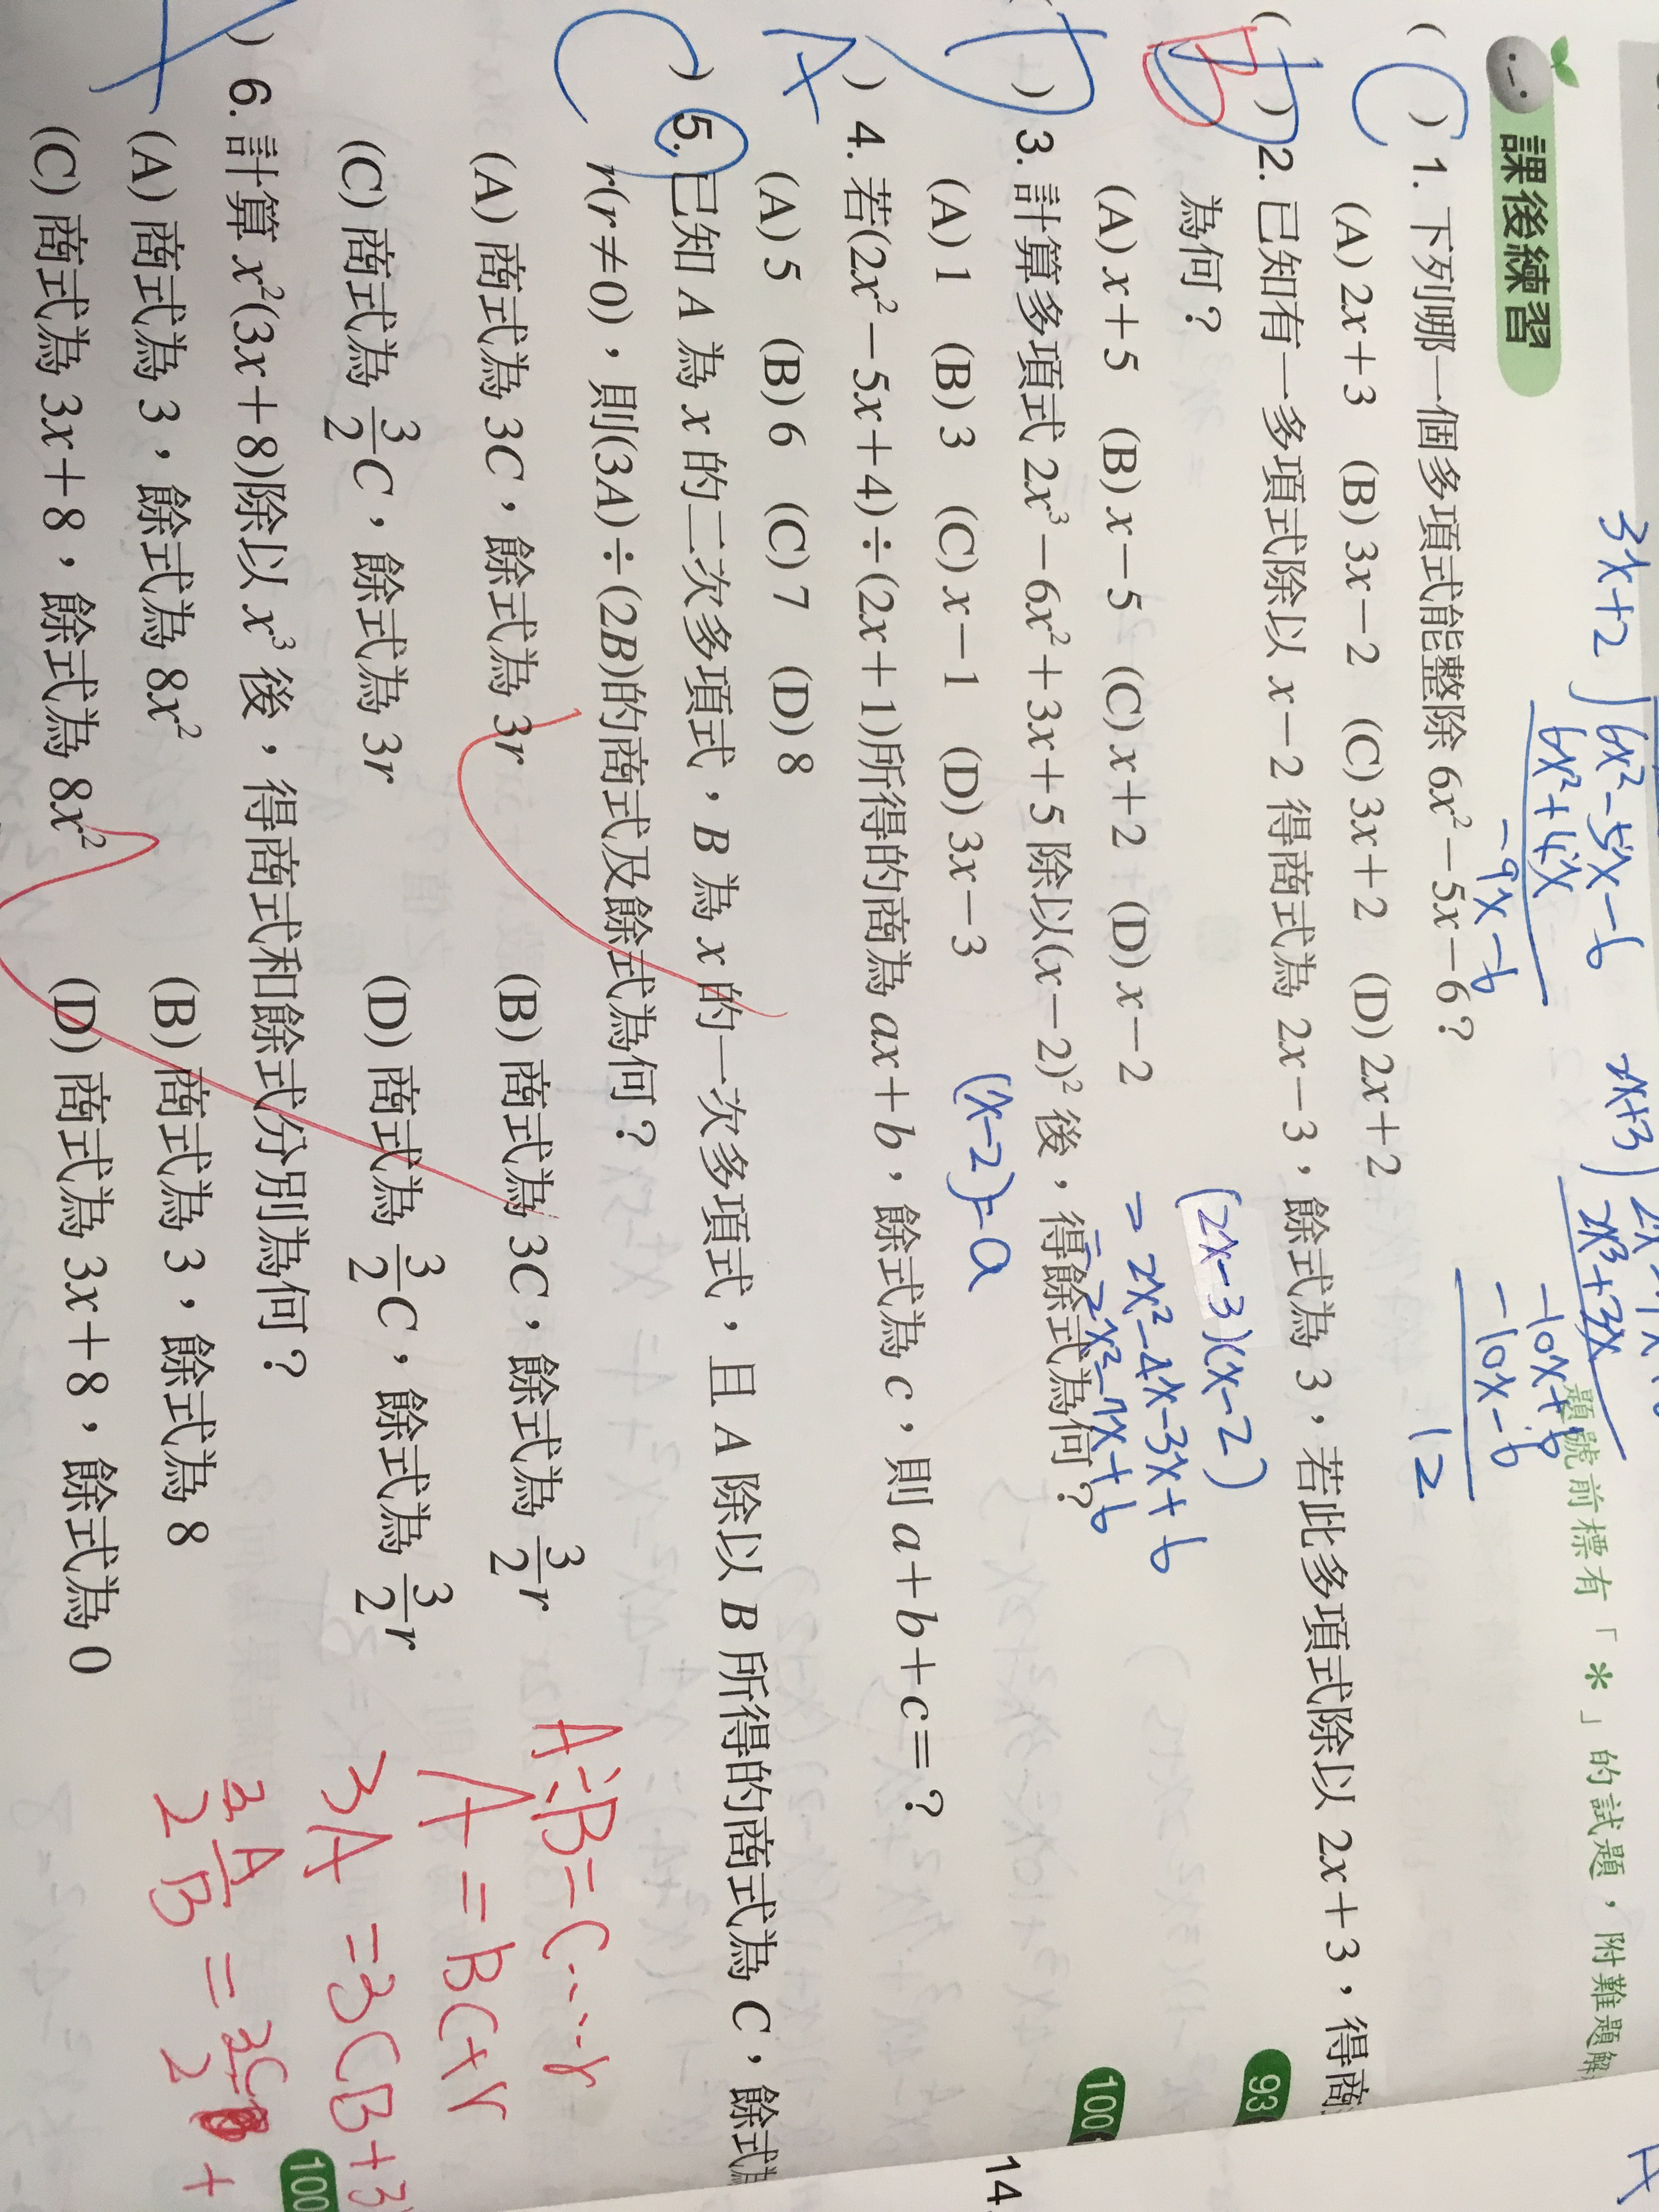 課後練習
題號前標有「*」的試題，附難題解
3x+2 6x²-5x-6
6x²+4x
-9x-6
2x+3
2x³+3x
-10x+6
-10x-6
12
( C ) 1. 下列哪一個多項式能整除 6x²-5x-6？
(A) 2x+3 (B) 3x-2 (C) 3x+2 (D) 2x+2
( B ) 2. 已知有一多項式除以 x-2 得商式為 2x-3，餘式為 3，若此多項式除以 2x+3，得商
為何？
93
(A) x+5 (B) x-5 (C) x+2 (D) x-2
(2x-3)(x-2)
=2x²-4x-3x+6
=2x²-7x+6
) 3. 計算多項式 2x³-6x²+3x+5 除以(x-2)²後，得餘式為何？
100
(A) 1 (B) 3 (C) x-1 (D) 3x-3
(x-2)-a
A ) 4. 若(2x²-5x+4)÷(2x+1)所得的商為 ax+b，餘式為 c，則 a+b+c=？
(A) 5 (B) 6 (C) 7 (D) 8
C ) 5. 已知 A 為 x 的二次多項式，B 為 x 的一次多項式，且 A 除以 B 所得的商式為 C，餘式為
r(r≠0)，則(3A)÷(2B)的商式及餘式為何？
(A) 商式為 3C，餘式為 3r (B) 商式為 3C，餘式為 3/2 r
(C) 商式為 3/2 C，餘式為 3r (D) 商式為 3/2 C，餘式為 3/2 r
A÷B=C…r
A=BC+r
3A=3CB+3
3A/2B=3C/2+
) 6. 計算 x²(3x+8)除以 x³ 後，得商式和餘式分別為何？
100
(A) 商式為 3，餘式為 8x² (B) 商式為 3，餘式為 8
(C) 商式為 3x+8，餘式為 8x² (D) 商式為 3x+8，餘式為 0
14.